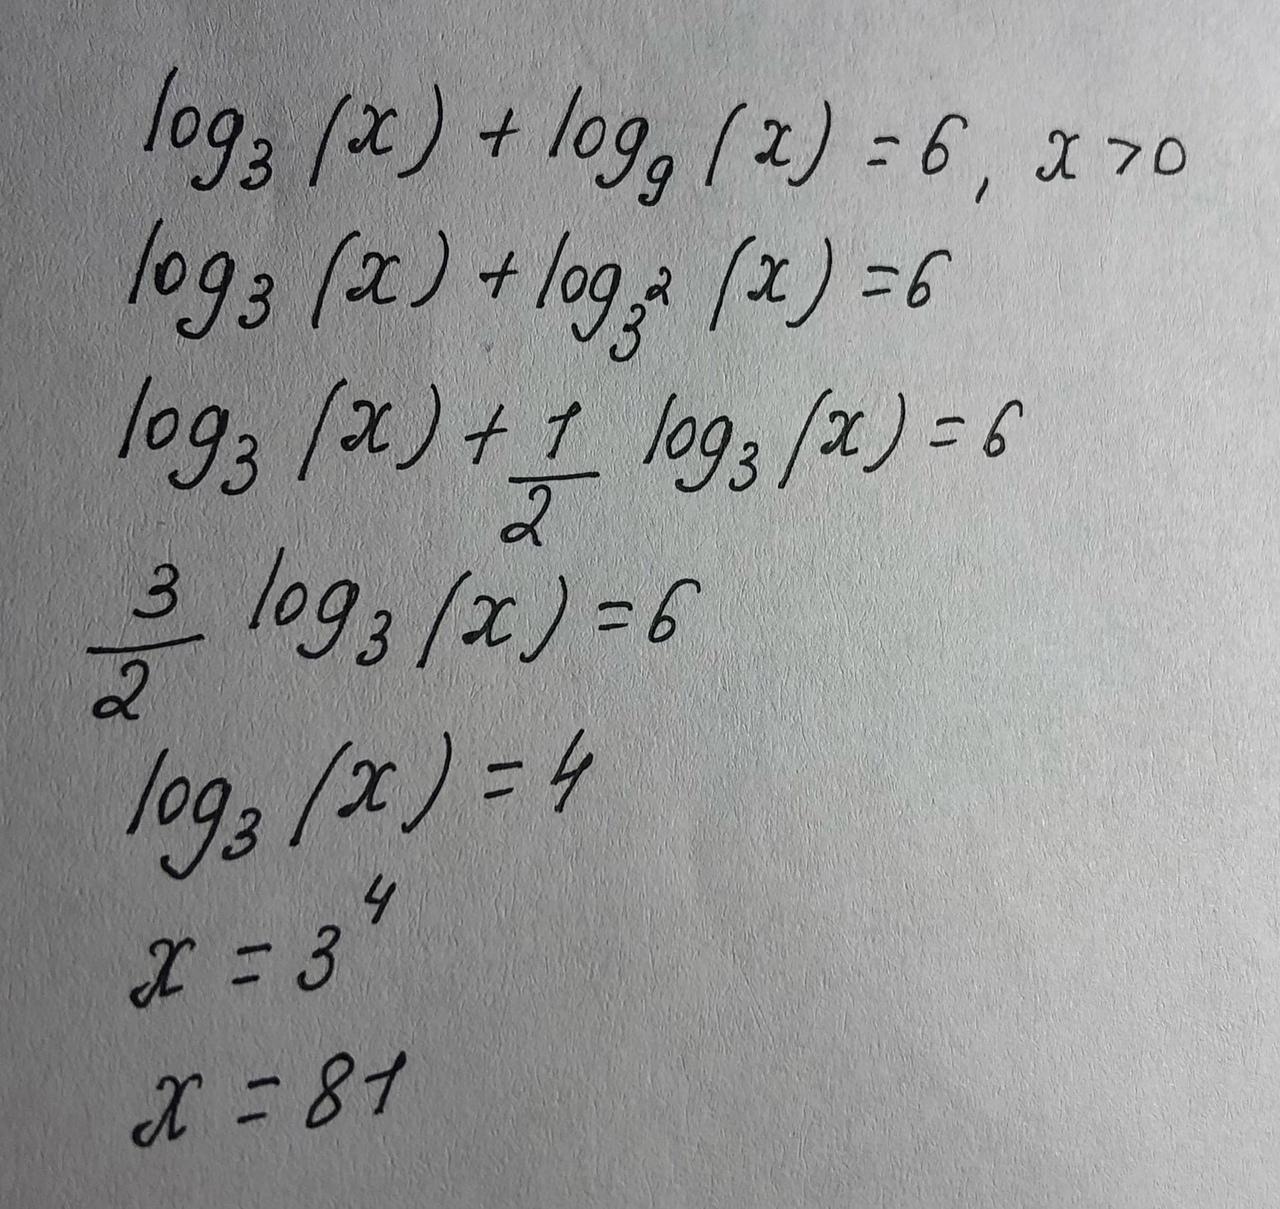 log₃(x) + log₉(x) = 6, x > 0
log₃(x) + log_{3²}(x) = 6
log₃(x) + 1/2 log₃(x) = 6
3/2 log₃(x) = 6
log₃(x) = 4
x = 3⁴
x = 81